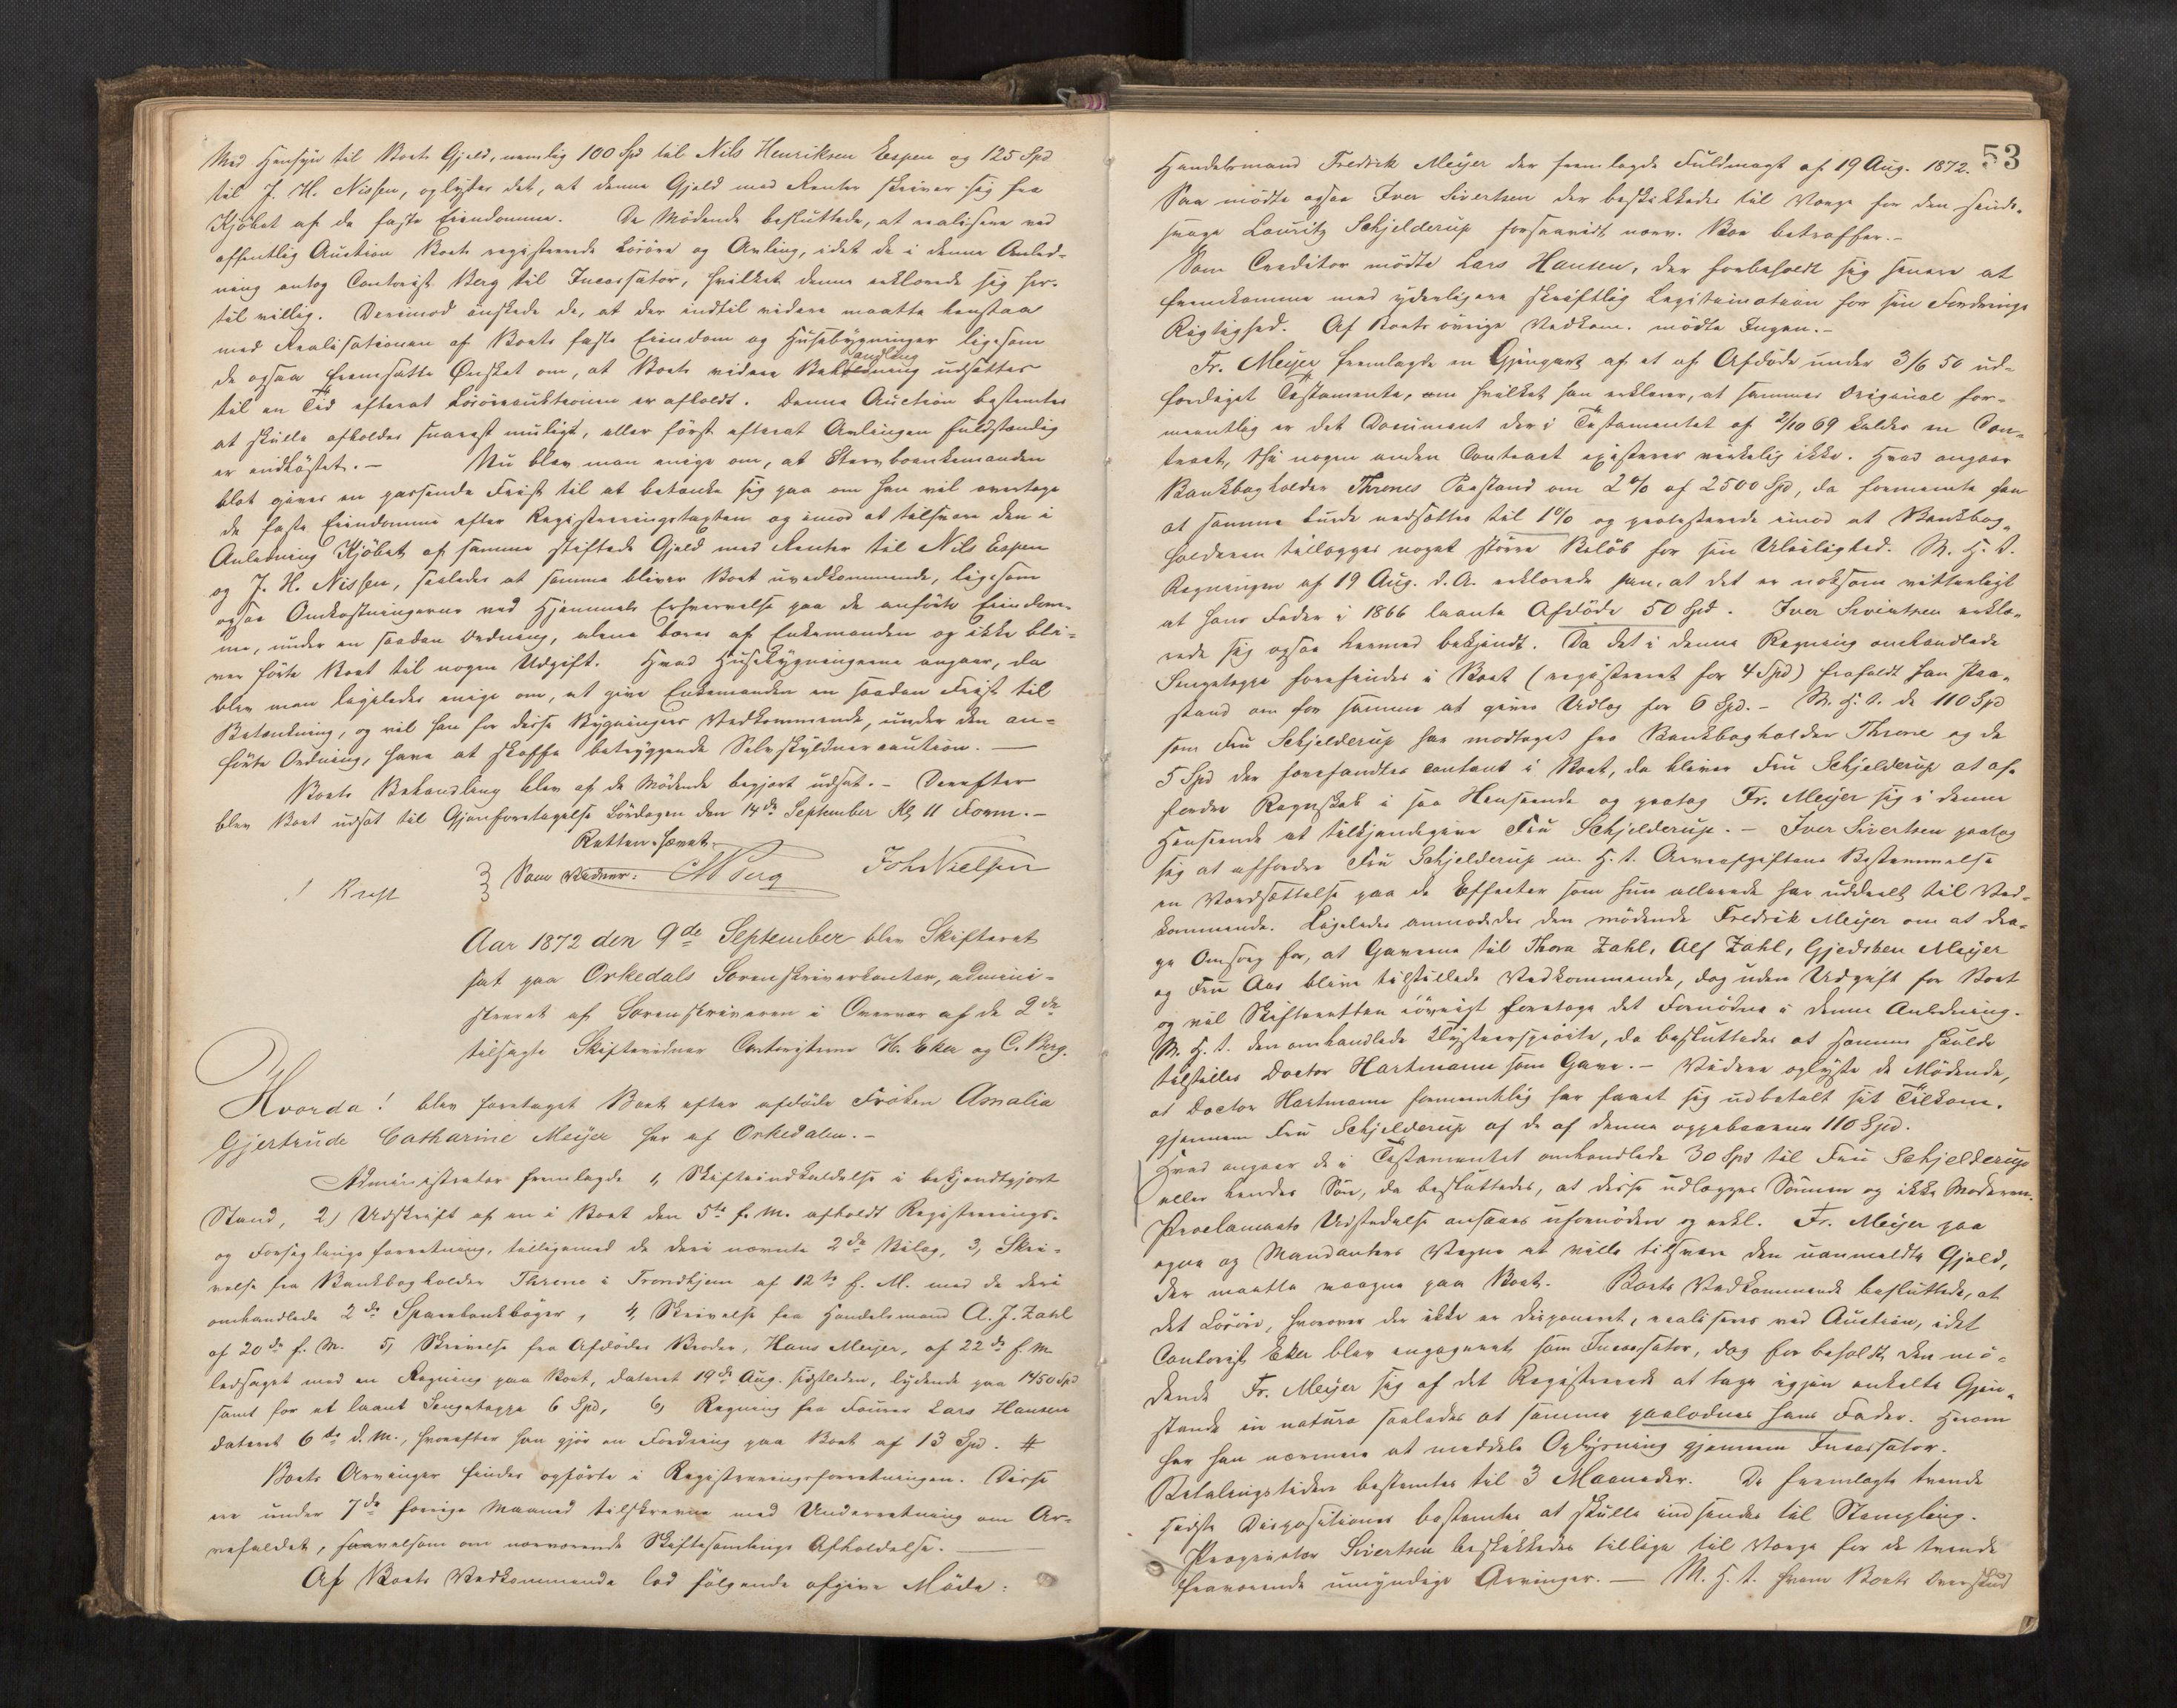 Med Hensyn til Boets Gjeld, nemlig 100 Spd til Nils Henriksen Espen og 125 Spd
til J. H. Nissen, oplystes det, at denne Gjeld med Renter skriver sig fra
Kjøbet af de faste Eiendomme. De Mødende besluttede, at realisere ved
offentlig Auction Boets registrerede Løsøre og Avling, idet de i denne Anled-
ning antog Contorist Berg til Incassator, hvilket denne erklærede sig her-
til villig. Derimod ønskede de, at der indtil videre maatte henstaa
med Realisationen af Boets faste Eiendom og Husebygninger ligesom
de ogsaa fremsatte Ønsket om, at Boets videre Behandling udsættes
til en Tid efterat Løsøreauktionen er afholdt. Denne Auction bestemtes
at skulle afholdes snarest muligt, eller først efterat Avlingen fuldstændig
er indhøstet. – Nu blev man enige om, at Stervboenkemanden
blot gives en passende Frist til at betænke sig paa om han vil overtage
de faste Eiendomme efter Registreringstaxten og imod at tilsvare den i
Anledning Kjøbet af samme stiftede Gjeld med Renter til Nils Espen
og J. H. Nissen, saaledes at samme bliver Boet uvedkommende, ligesom
ogsaa Omkostningerne ved Hjemmels Erhvervelse paa de anførte Eiendom-
me, under en saadan Ordning, alene bæres af Enkemanden og ikke bli-
ver førte Boet til nogen Udgift. Hvad Husebygningerne angaar, da
blev man ligeledes enige om, at give Enkemanden en saadan Frist til
Betænkning, og vil han for disse Bygningers Vedkommende, under den an-
førte Ordning, have at skaffe betryggende Selvskyldnercaution. —
Boets Behandling blev af de Mødende begjært udsat. – Derefter
blev Boet udsat til Gjenforetagelse Lørdagen den 14de September Kl 11 Form. –
Retten hævet.
Som Vidner: Berg Joh Nielsen
Aar 1872 den 9de September blev Skifteret
sat paa Orkedals Sorenskriverkontor, admini-
streret af Sorenskriveren i Overvær af de 2de
tilsagte Skiftevidner Contoristerne H. Eker og C. Berg.
Hvorda! blev foretaget Boet efter afdøde Frøken Amalia
Gjertrude Catharine Meyer her af Orkedalen. –
Administrator fremlagde 1, Skifteindkaldelse i bekjendtgjort
Stand, 2) Udskrift af en i Boet den 5te f. M. afholdt Registrerings-
og Forseglingsforretning, tilligemed de deri nævnte 2de Bilag, 3, Skri-
velse fra Bankbogholder Throne i Trondhjem af 12te f. M. med de deri
omhandlede 2de Sparebankbøger, 4, Skrivelse fra Handelsmand A. J. Zahl
af 20de f. M. 5, Skrivelse fra Afdødes Broder, Hans Meyer, af 22de f M
ledsaget med en Regning paa Boet, dateret 19de Aug. sidstleden, lydende paa 1450 Spd
samt for et laant Sengetæppe 6 Spd, 6, Regning fra Lars Hansen
dateret 6te d. M., hvorefter han gjør en Fordring paa Boet af 13 Spd. #
Boets Arvinger findes opførte i Registreringsforretningen. Disse
ere under 7de forrige Maaned tilskrevne med Underretning om Ar-
vefaldet, saavelsom om nærværende Skiftesamlings Afholdelse. —
Af Boets Vedkommende lod følgende afgive Møde:
53
Handelsmand Fredrik Meyer der fremlagde Fuldmagt af 19 Aug. 1872.
Saa mødte ogsaa Iver Sivertsen der beskikkedes til Værge for den sinds-
svage Lauritz Schjelderup forsaavidt nærv. Boe betræffer. –
Som Creditor mødte Lars Hansen, der forbeholdt sig senere at
fremkomme med yderligere skriftlig Legitimation for sin Fordrings
Rigtighed. Af Boets øvrige Vedkom. mødte Ingen. –
Fr. Meyer fremlagde en Gjenpart af et af Afdøde under 3/6 50 ud-
færdiget Testamente, om hvilket han erklærer, at sammes Original for-
mentlig er det Document der i Testamentet af 2/10 69 kaldes en Con-
tract, thi nogen anden Contract existerer virkelig ikke. Hvad angaar
Bankbogholder Thrones Paastand om 2% af 2500 Spd, da formente han
at samme burde nedsættes til 1% og protesterede imod at Bankbog-
holderen tillægges noget større Beløb for sin Uleilighed. M. H. t.
Regningen af 19 Aug. d. A. erklærede han, at det er noksom vitterligt
at hans Fader i 1866 laante Afdøde 50 Spd. Iver Sivertsen erklæ-
rede sig ogsaa hermed bekjendt. Da det i denne Regning omhandlede
Sengetæppe forefindes i Boet (registreret for 4 Spd) frafaldt han Paa-
stand om for samme at gives Udlæg for 6 Spd. – M. H. t. de 110 Spd
som Fru Schjelderup har modtaget fra Bankbogholder Throne og de
5 Spd der forefandtes contant i Boet, da bliver Fru Schjelderup at af-
fordre Regnskab i saa Henseende og paatog Fr. Meyer sig i denne
Henseende at tilkjendegive Fru Schjelderup. – Iver Sivertsen paatog
sig at affordre Fru Schjelderup m. H. t. Arveafgiftens Bestemmelse
en Værdsættelse paa de Effecter som hun allerede har uddeelt til Ved-
kommende. Ligeledes anmodedes den mødende Fredrik Meyer om at dra-
ge Omsorg for, at Gaverne til Thora Zahl, Alf Zahl, Gjedsken Meyer
og Fru Aas blive tilstillede Vedkommende, dog uden Udgift for Boet
og vil Skifteretten iøvrigt foretage det Fornødne i denne Anledning.
M. H. t. den omhandlede Klysteersprøite, da besluttedes at samme skulde
tilstilles Doctor Hartmann som Gave. – Videre oplyste de Mødende,
at Doctor Hartmann formentlig har faaet sig udbetalt sit Tilkom.
gjennem Fru Schjelderup af de af denne oppebaarne 110 Spd.
Hvad angaar de i Testamentet omhandlede 30 Spd til Fru Schjelderup
eller hendes Søn, da besluttedes, at disse udlægges Sønnen og ikke Moderen.
Proclamaets Udstedelse ansaaes ufornøden og erkl. Fr. Meyer paa
egne og Mandanters Vegne at ville tilsvare den uanmeldte Gjeld,
der maatte paa Boet. Boets Vedkommende besluttede, at
det Løsøre, hvorover der ikke er disponeret, realiseres ved Auction, idet
Contorist Eker blev engageret som Incassator, dog forbeholdt den mø-
dende Fr. Meyer sig af det Registrerede at tage igjen enkelte Gjen-
stande in natura saaledes at samme paalodnes hans Fader. Herom
har han nærmere at meddele Oplysning gjennem Incassator.
Betalingstiden bestemtes til 3 Maaneder. De fremlagte tvende
sidste Dispositioner bestemtes at skulle indsendes til Stempling.
Proprietær Sivertsen beskikkedes tillige til Værge for de tvende
fraværende umyndige Arvinger. — M. H. t. hvem Boets Overskud